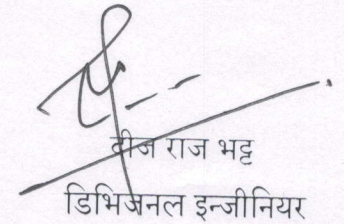 वीज राज भट्ट
डिभिजनल इन्जीनियर